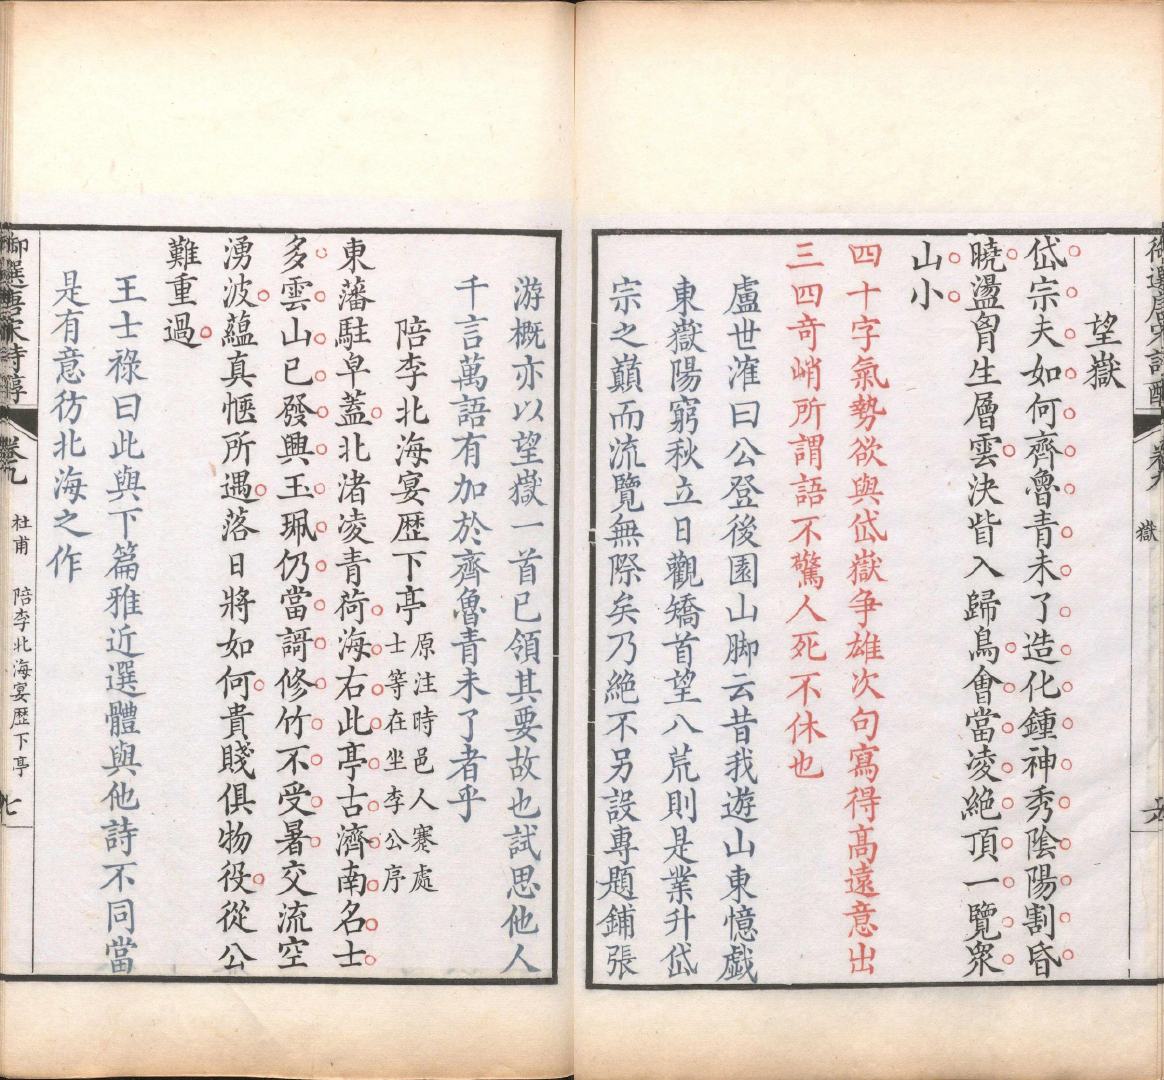 望嶽
岱宗夫如何齊魯青未了造化鍾神秀陰陽割昏
曉盪胷生層雲決眥入歸鳥會當凌絶頂一覽衆
山小
四十字氣勢欲與岱嶽争雄次句寫得高遠意出
三四奇峭所謂語不驚人死不休也
盧世㴶曰公登後園山脚云昔我遊山東憶戲
東嶽陽窮秋立日觀矯首望八荒則是業升岱
宗之巔而流覽無際矣乃絶不另設專題鋪張
游概亦以望嶽一首已領其要故也試思他人
千言萬語有加於齊魯青未了者乎
陪李北海宴歴下亭原注時邑人蹇處
士等在坐李公序
東藩駐皁蓋北渚凌青荷海右此亭古濟南名士
多雲山已發興玉珮仍當謌修竹不受暑交流空
湧波藴真愜所遇落日將如何貴賤俱物役從公
難重過
王士祿曰此與下篇雅近選體與他詩不同當
是有意彷北海之作
御選唐宋詩醇
卷九
杜甫 陪李北海宴歴下亭
七